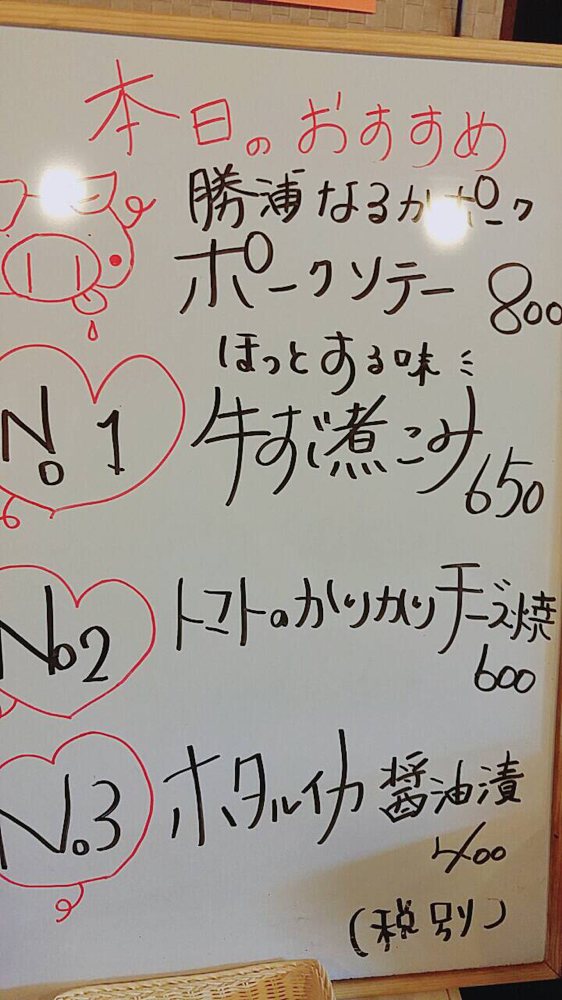 本日のおすすめ
勝浦なるかポーク
ポークソテー 800
ほっとする味
No1
牛すじ煮こみ
650
No2
トマトのかりかりチーズ焼
600
No.3
ホタルイカ醤油漬
400
(税別)